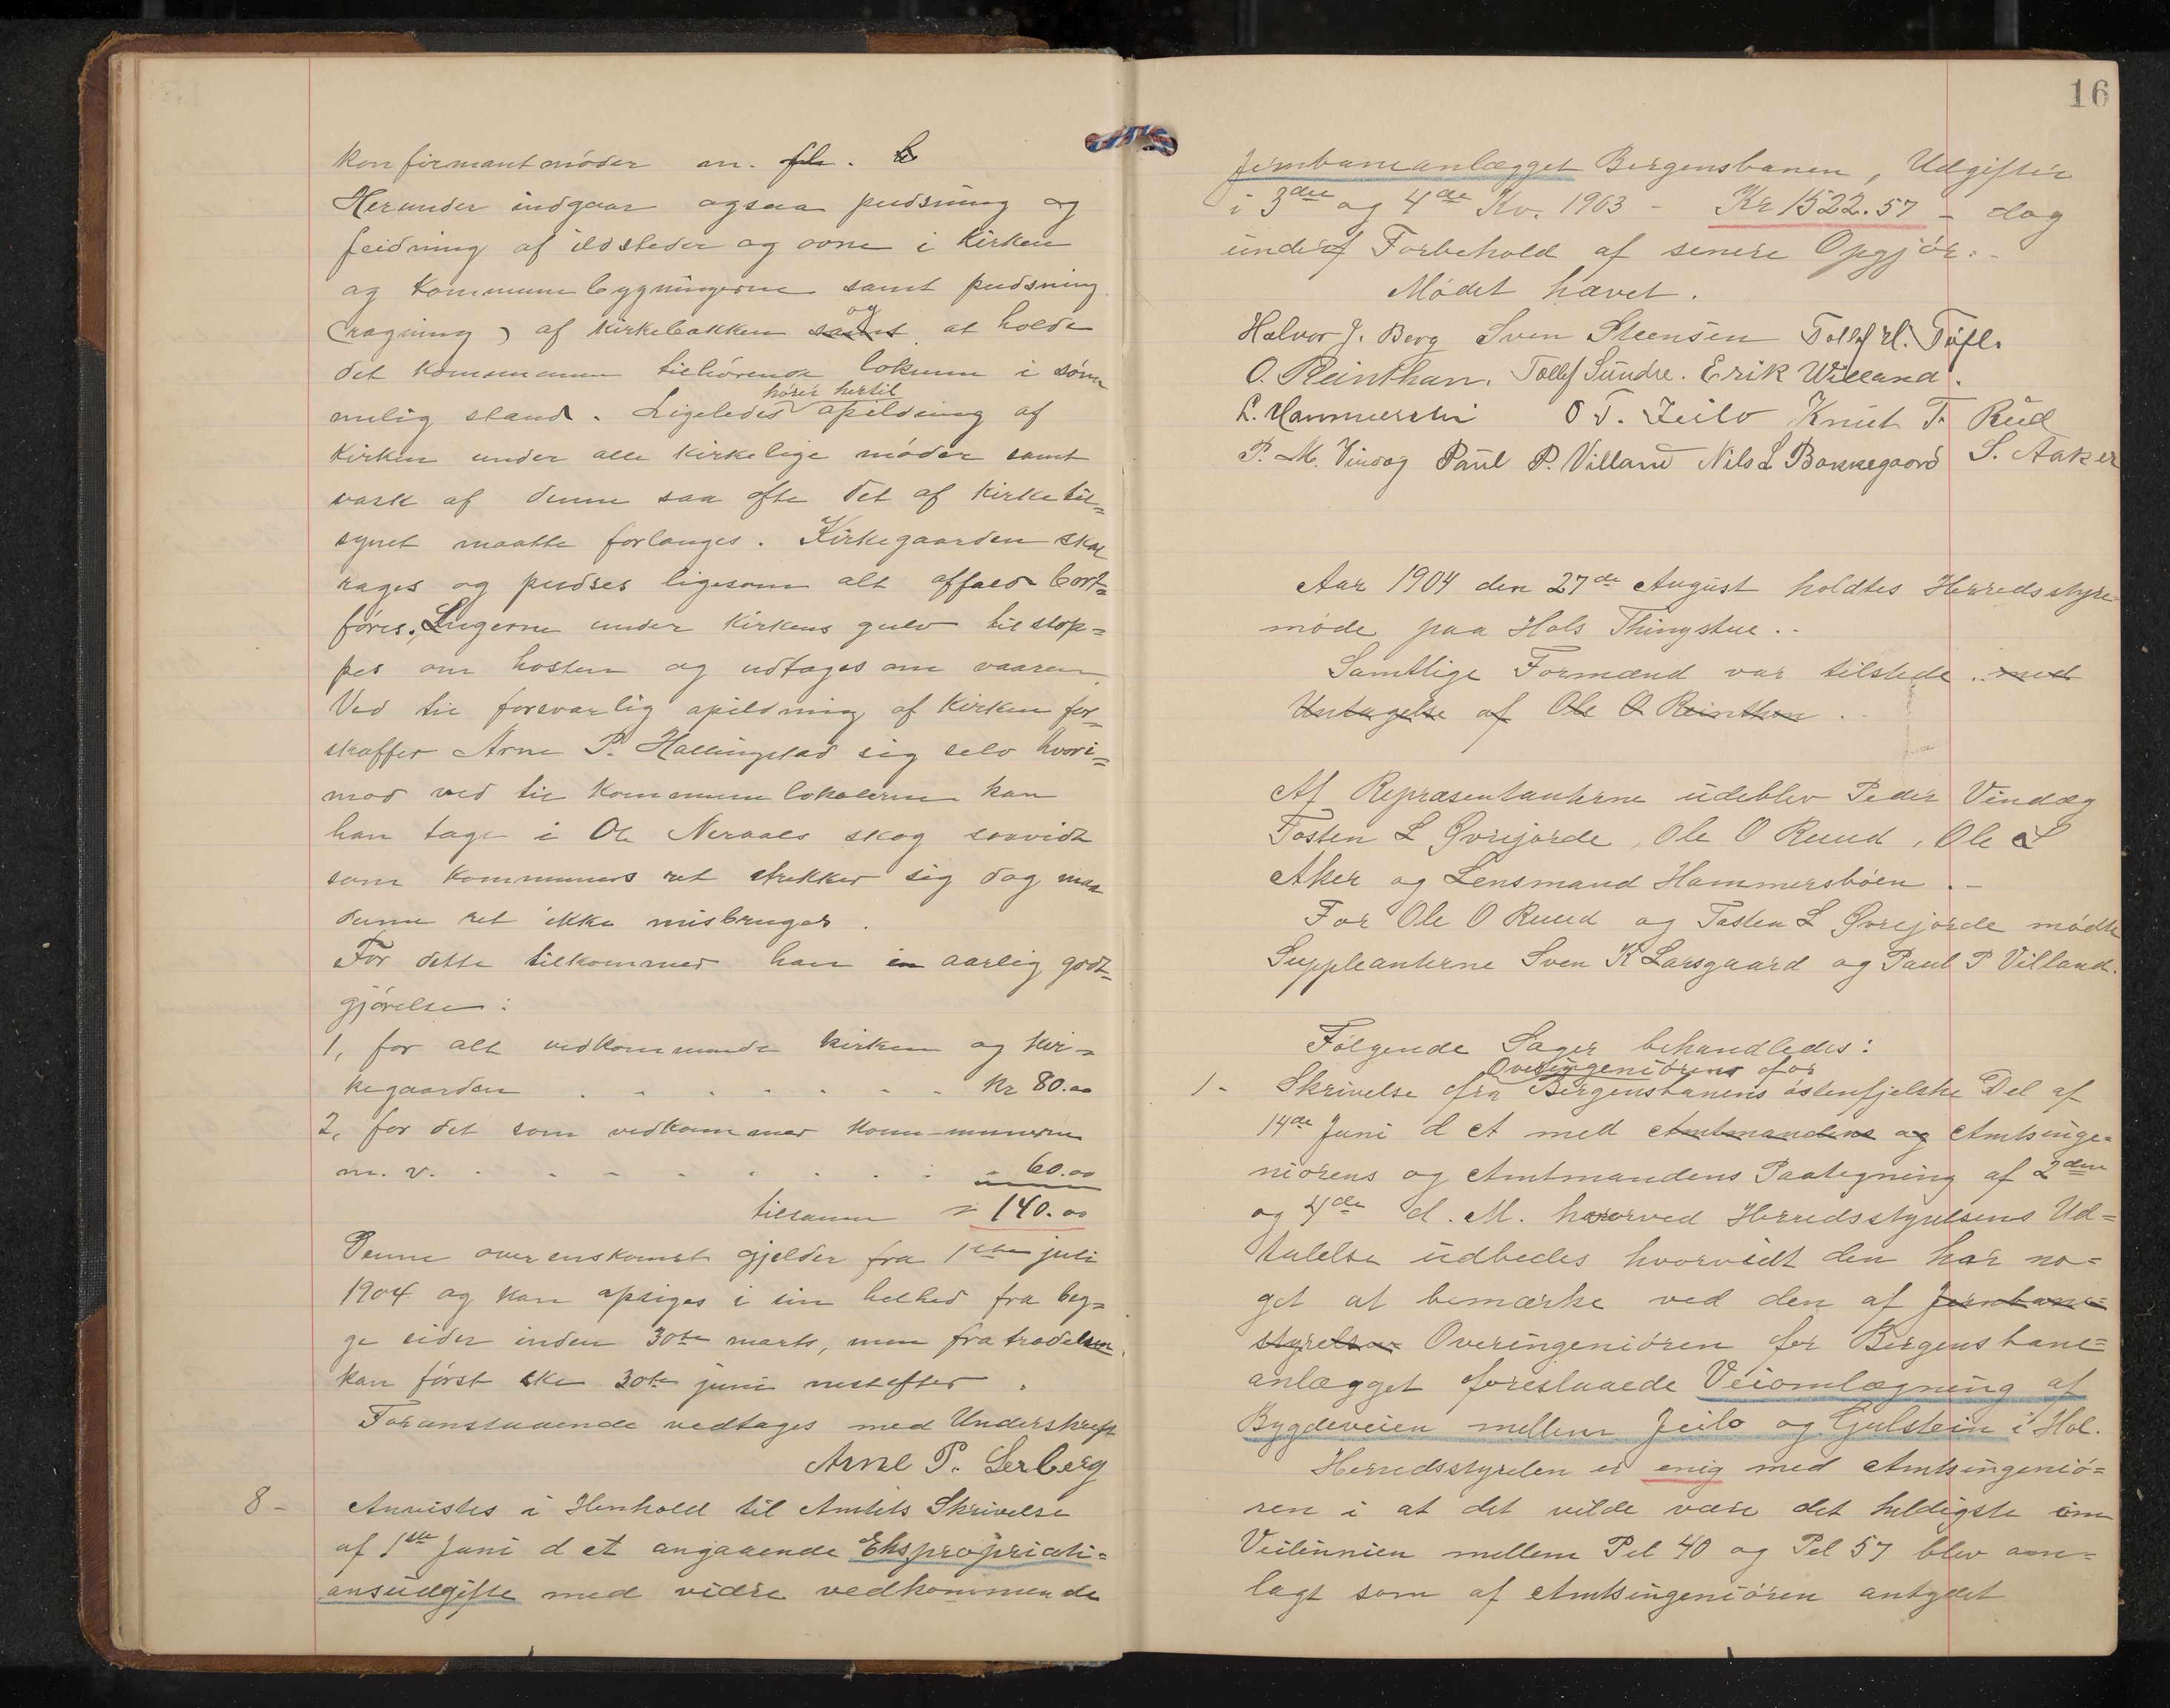 konfirmantmöder m. fl.
Herunder indgaar ogsaa pudsning og
feidning af ildsteder og ovne i kirken
og kommunebygningerne samt pudsning
(ragning) af kirkebakken samt og at holde
det kommunen tilhörende lokum i söm
melig stand. Ligeledes hörer hertil opildning af
kirken under alle kirkelige möder samt
vask af denne saa ofte det af kirketil=
synet maatte forlanges. Kirkegaarden skal
rages og pudses ligesom alt affald bort=
föres. Lugerne under kirkens gulv tilstop=
pes om hosten og udtages om vaaren.
Ved til forsvarlig opildning af kirken for=
skaffer Arne P. Hallingstad sig selv hvori=
mod ved til kommunelokalerne kan
han tage i Ole Neraals skog saavidt
som kommunens ret strekker sig dog maa
denne ret ikke misbruges.
For dette tilkommer han en aarlig godt=
gjörelse:
1, for alt vedkommende kirken og kir=
kegaarden . . . . . . Kr 80.00
2, for det som vedkommer kommunen
m. v. . . . . . . . " 60.00
tilsamm = 140.00
Denne overenskomst gjelder fra 1ste juli
1904 og kan opsiges i sin helhed fra beg=
ge sider inden 30te marts, men fratrædelsen
kan först ske 30te juni nestefter.
Foranstaaende vedtages med Underskrift
Arne P. Lerberg
8 - Anvistes i Henhold til Amtets Skrivelse
af 1ste Juni d A angaaende Ekspropriati=
onsudgifte med videre vedkommende
16
Jernbaneanlægget Bergensbanen, Udgifter
i 3die og 4de Kv. 1903 - Kr 1522.57 - dog
under Forbehold af senere Opgjör. -
Mödet hævet.
Halvor J. Berg Sven Steensen Tollef H. Tufte
O. Reinthan. Tollef Sundre. Erik Willand.
L. Hammersbøn O T. Jeilo Knut T. Rud
P. M. Vindeg Paul P. Villand Nils L Bakkegaard S. Aaker
Aar 1904 den 27de August holdtes Herredsstyre-
möde paa Hols Thingstue. -
Samtlige Formænd var tilstede .. med
Undtagelse af Ole O Reinthon .
Af Repræsentanterne udeblev Peder Vindeg
Tosten L Øvrejorde, Ole O Ruud, Ole L
Aker og Lensmand Hammersböen. -
For Ole O Ruud og Tosten L Øvrejorde mödte
Suppleanterne Sven K Larsgaard og Paul P Villand.
Fölgende Sager behandledes:
1 - Skrivelse fra Overingeniörens for Bergensbanens östenfjelske Del af
14de Juni d A med Amtmandens og Amtsinge=
niörens og Amtmandens Paategning af 2den
og 4de d. M. hvorved Herredsstyrelsens Ud=
talelse udbedes hvorvidt den har no=
get at bemærke ved den af Jernbane=
styrelsen Overingeniören for Bergensbane=
anlægget foreslaaede Veiomlægning af
Bygdeveien mellem Jeilo og Gulstein i Hol.
Herredsstyrelen er enig med Amtsingeniö=
ren i at det vilde være det heldigste om
Veilinnien mellem Pel 40 og Pel 57 blev om=
lagt som af Amtsingeniören antydet